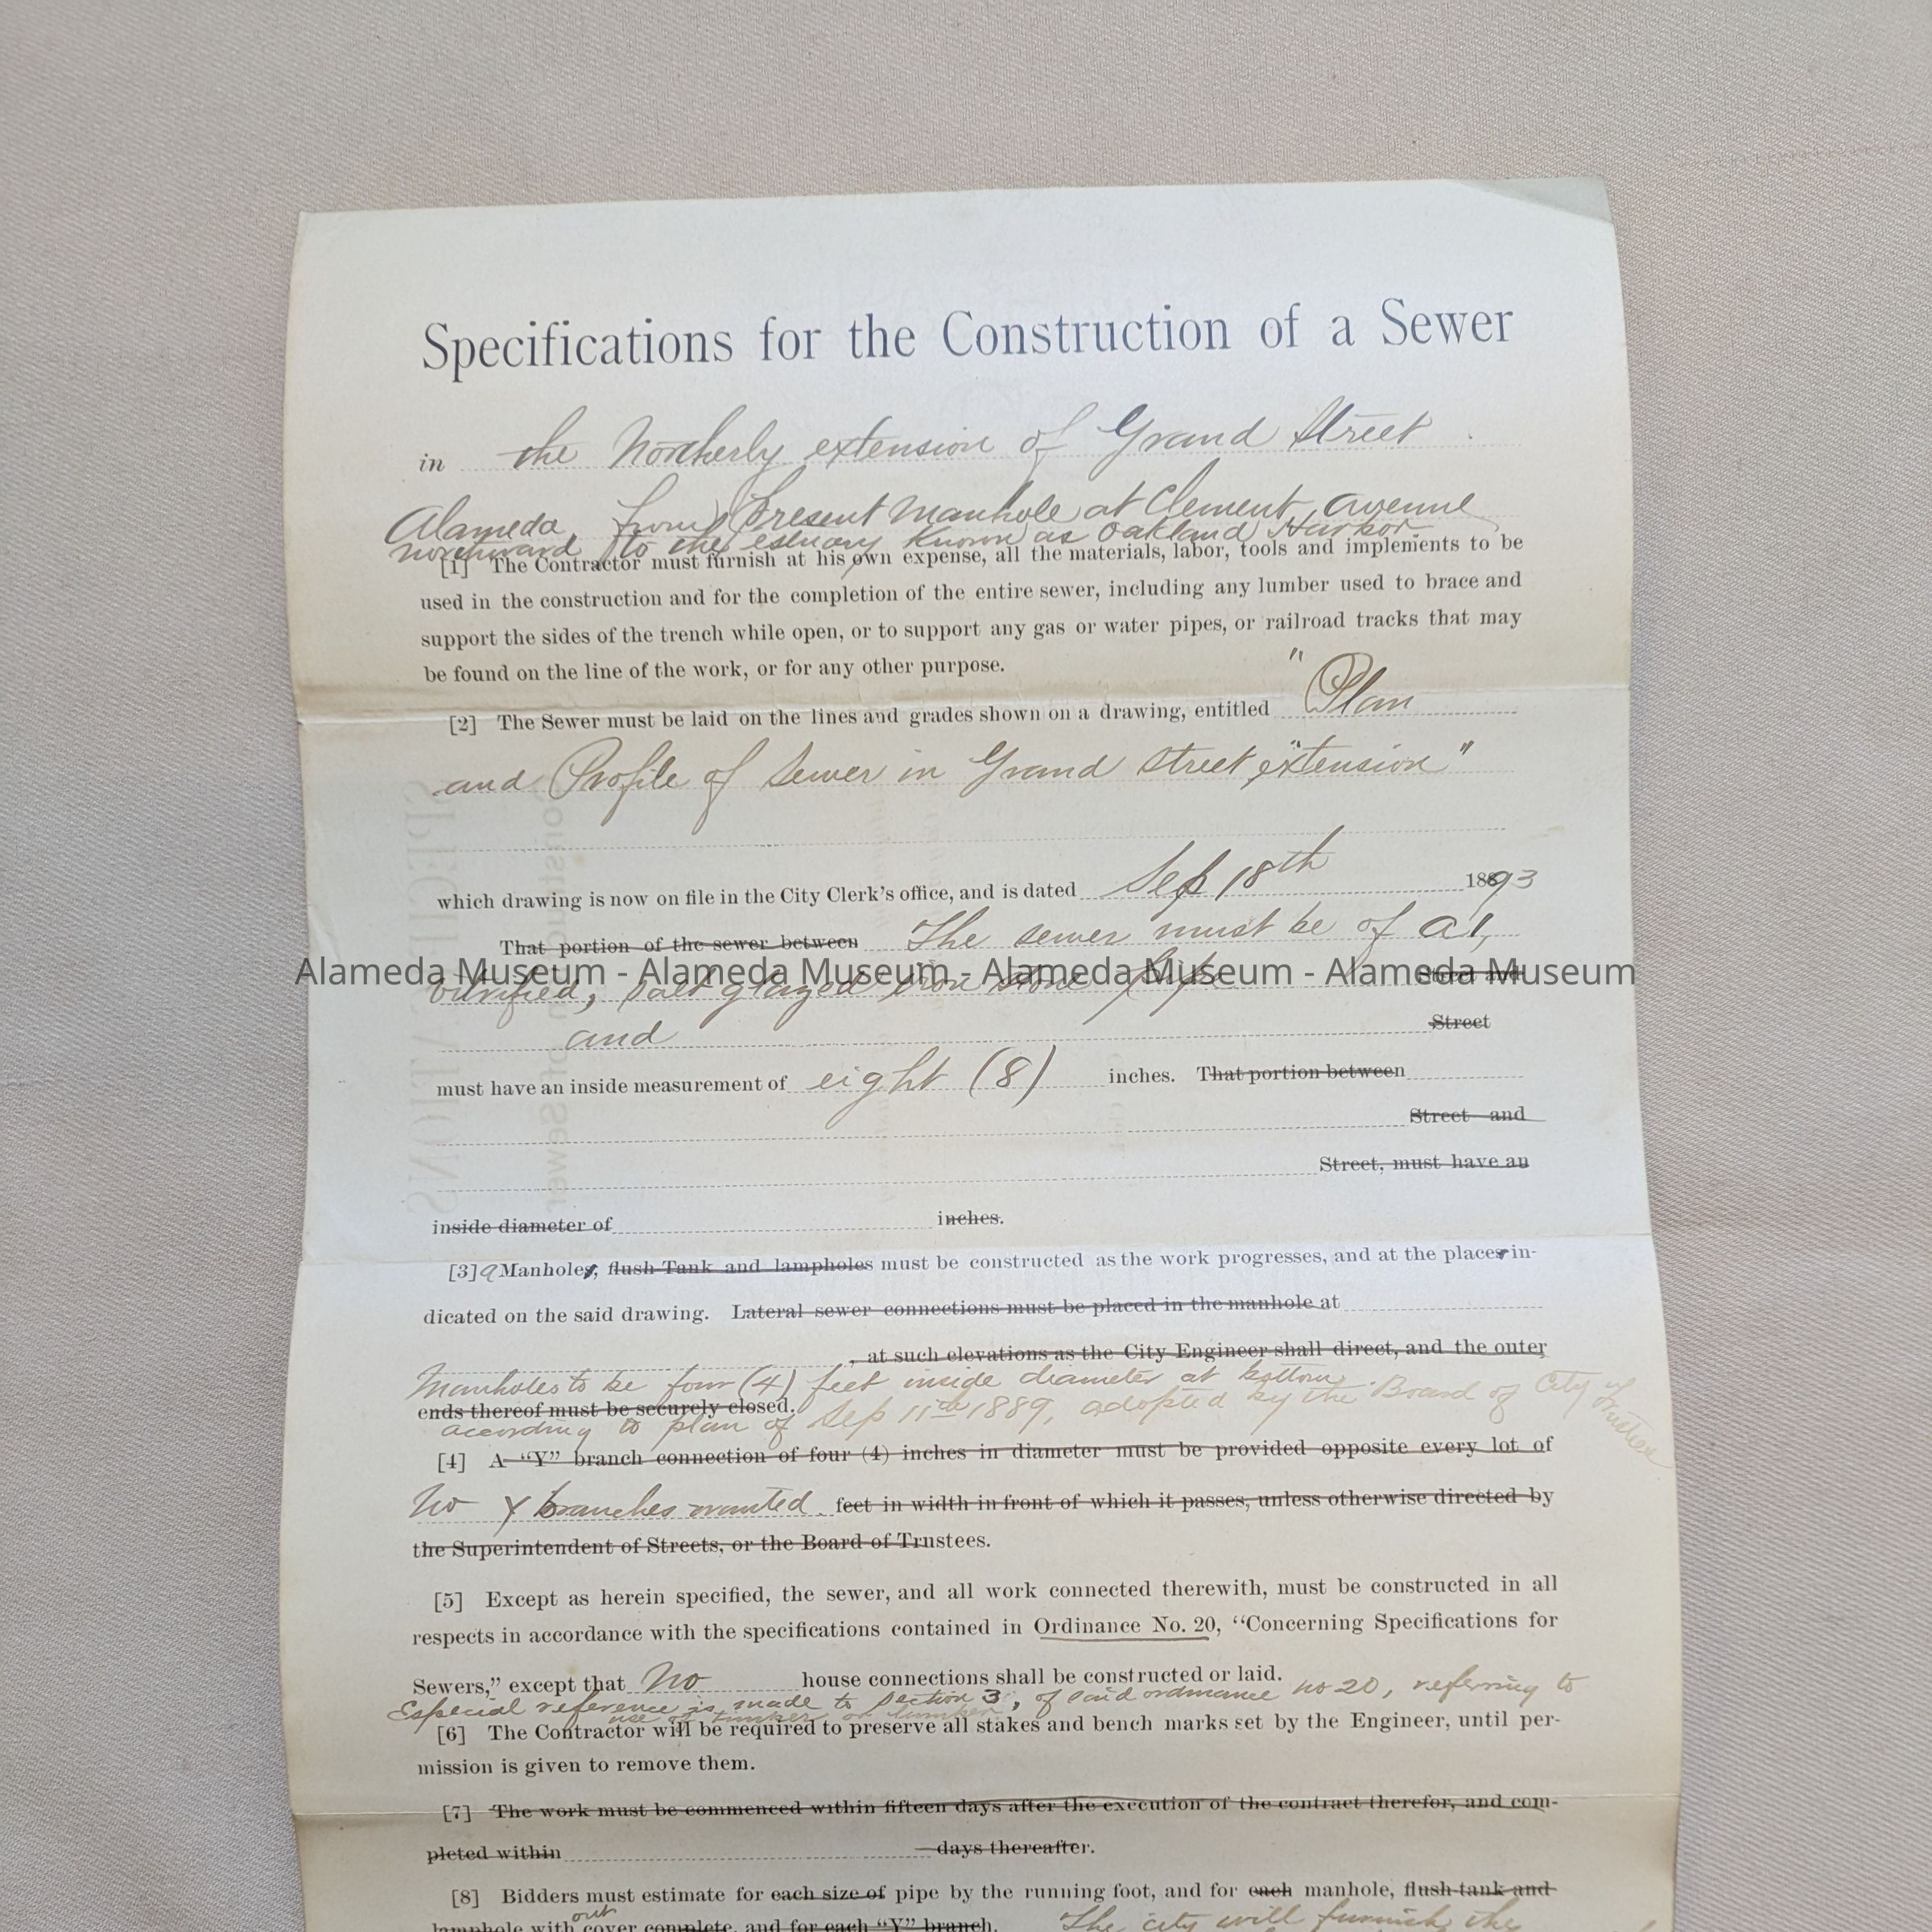 Specifications for the Construction of a Sewer
in the Northerly extension of Grand Street
Alameda, from present Manhole at Clement avenue
northward to the estuary known as Oakland Harbor.
[1] The Contractor must furnish at his own expense, all the materials, labor, tools and implements to be
used in the construction and for the completion of the entire sewer, including any lumber used to brace and
support the sides of the trench while open, or to support any gas or water pipes, or railroad tracks that may
be found on the line of the work, or for any other purpose.
[2] The Sewer must be laid on the lines and grades shown on a drawing, entitled "Plan
and Profile of Sewer in Grand Street "extension"
which drawing is now on file in the City Clerk's office, and is dated Sep 18th 1893
That portion of the sewer between The sewer must be of a 1,
Street and
Alameda Museum - Alameda Museum - Alameda Museum - Alameda Museum
vitrified, salt glazed iron stone pipe
and Street
must have an inside measurement of eight (8) inches. That portion between
Street and
Street, must have an
inside diameter of inches.
[3] a Manholes, flush Tank and lampholes must be constructed as the work progresses, and at the places in-
dicated on the said drawing. Lateral sewer connections must be placed in the manhole at
, at such elevations as the City Engineer shall direct, and the outer
Manholes to be four (4) feet inside diameter at bottom
ends thereof must be securely closed.
according to plan of Sep 11th 1889, adopted by the Board of City Trustees
[4] A "Y" branch connection of four (4) inches in diameter must be provided opposite every lot of
No Y branches wanted. feet in width in front of which it passes, unless otherwise directed by
the Superintendent of Streets, or the Board of Trustees.
[5] Except as herein specified, the sewer, and all work connected therewith, must be constructed in all
respects in accordance with the specifications contained in Ordinance No. 20, "Concerning Specifications for
Sewers," except that No house connections shall be constructed or laid.
Especial reference is made to section 3, of said ordinance no 20, referring to
use of timber or lumber.
[6] The Contractor will be required to preserve all stakes and bench marks set by the Engineer, until per-
mission is given to remove them.
[7] The work must be commenced within fifteen days after the execution of the contract therefor, and com-
pleted within days thereafter.
[8] Bidders must estimate for each size of pipe by the running foot, and for each manhole, flush tank and
lamphole with out cover complete, and for each "Y" branch. The city will furnish the